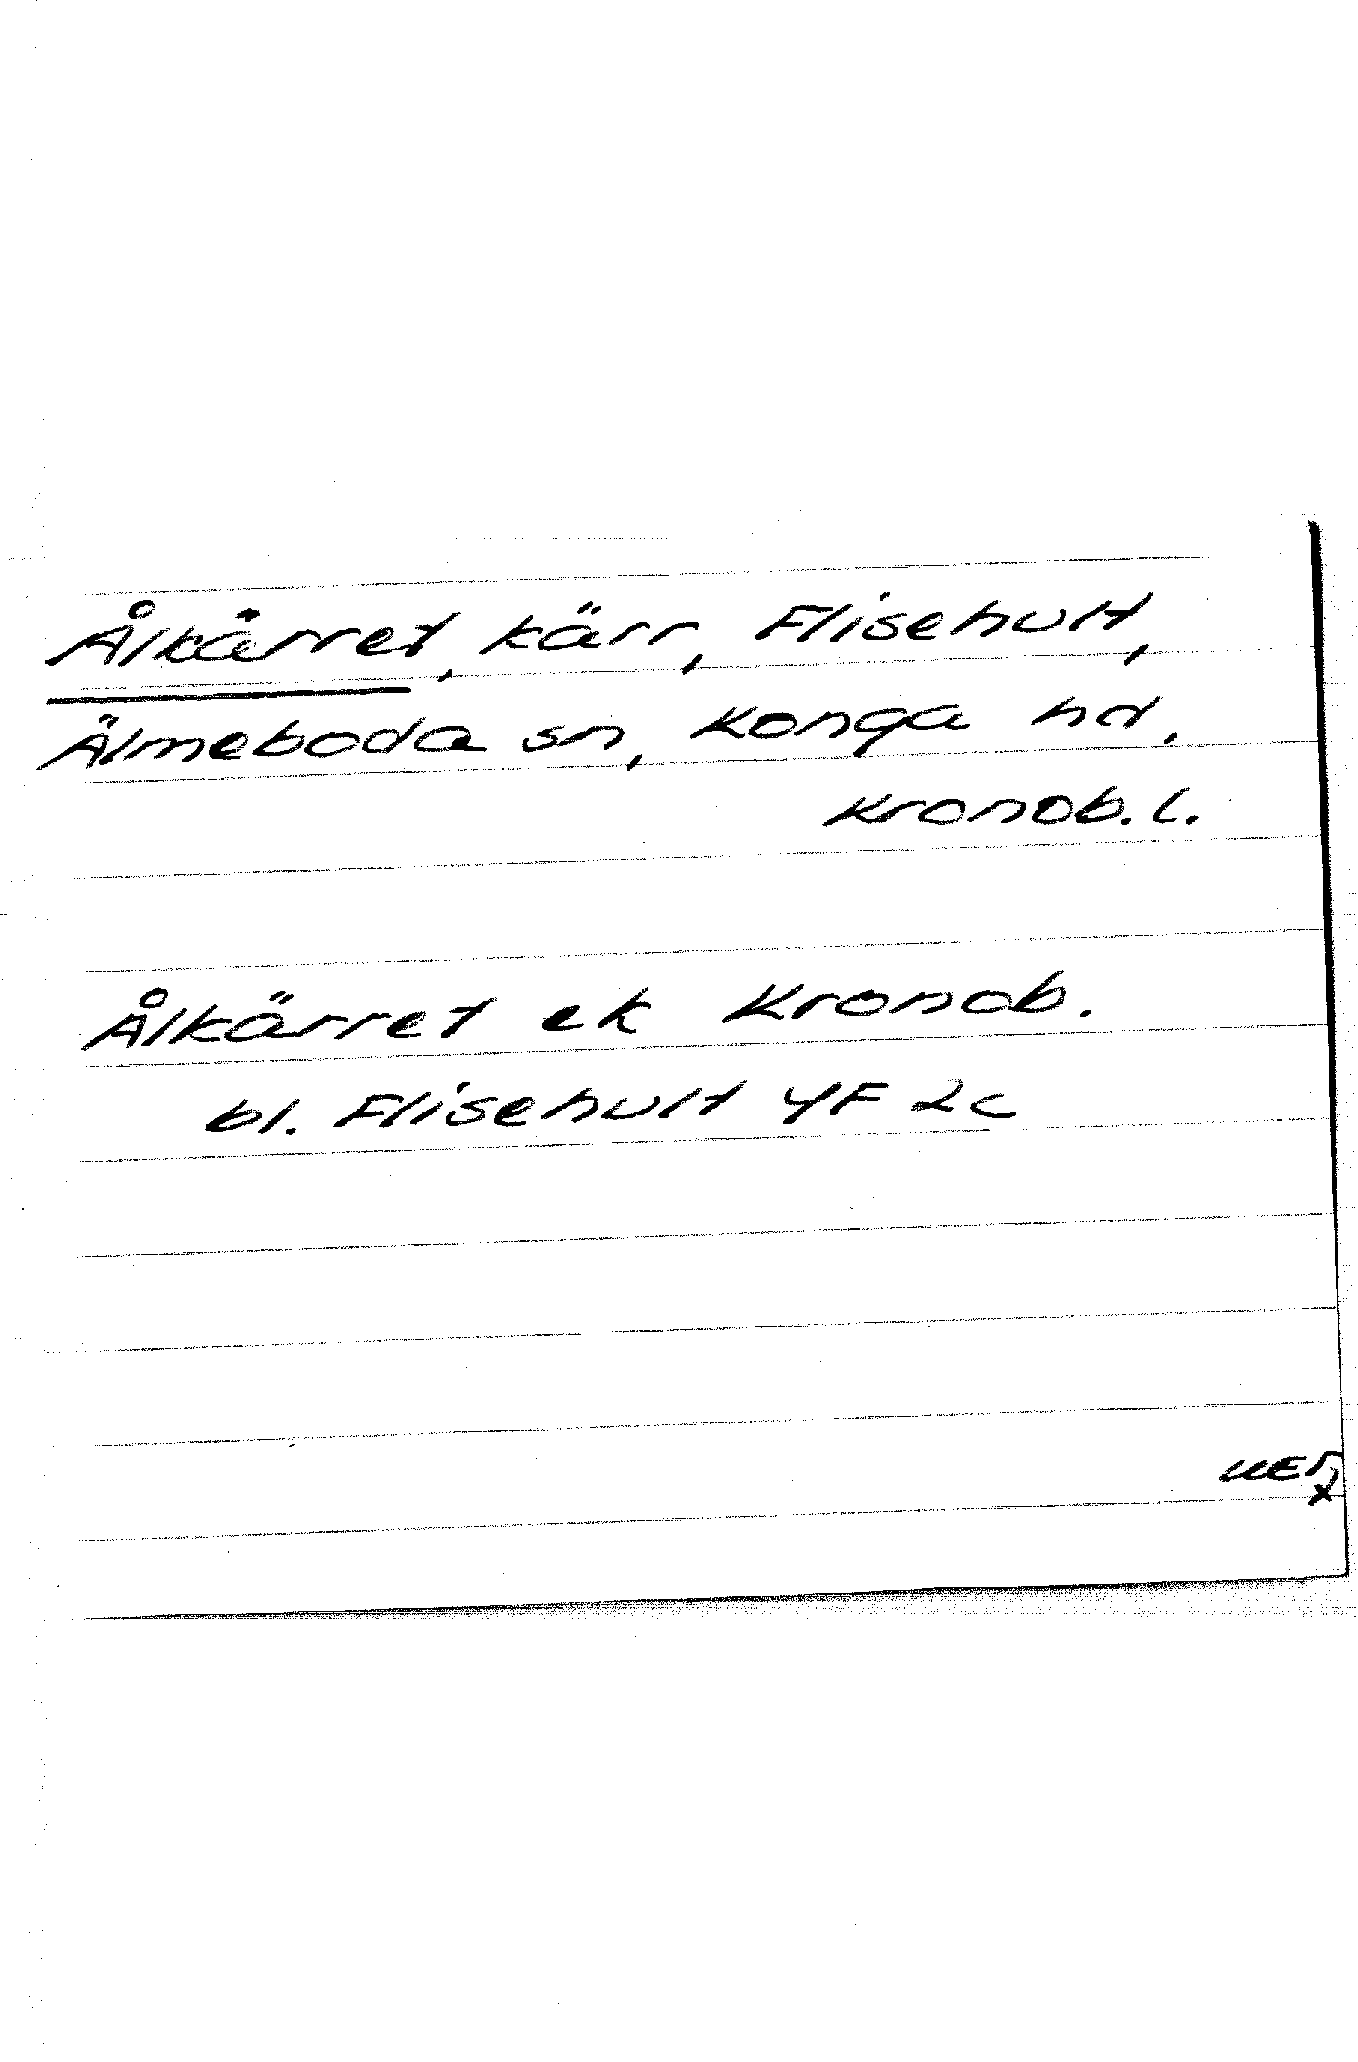 Ålkärret, kärr, Flisehult,
Älmeboda sn, Konga hd,
Kronob. l.
Ålkärret ek Kronob.
bl. Flisehult 4F 2c